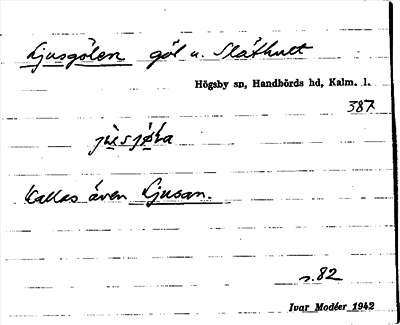 Ljusgölen göl u. Slåthult
Högsby sn, Handbörds hd, Kalm. l.
387
Kallas även Ljusan.
s. 82
Ivar Modéer 1942